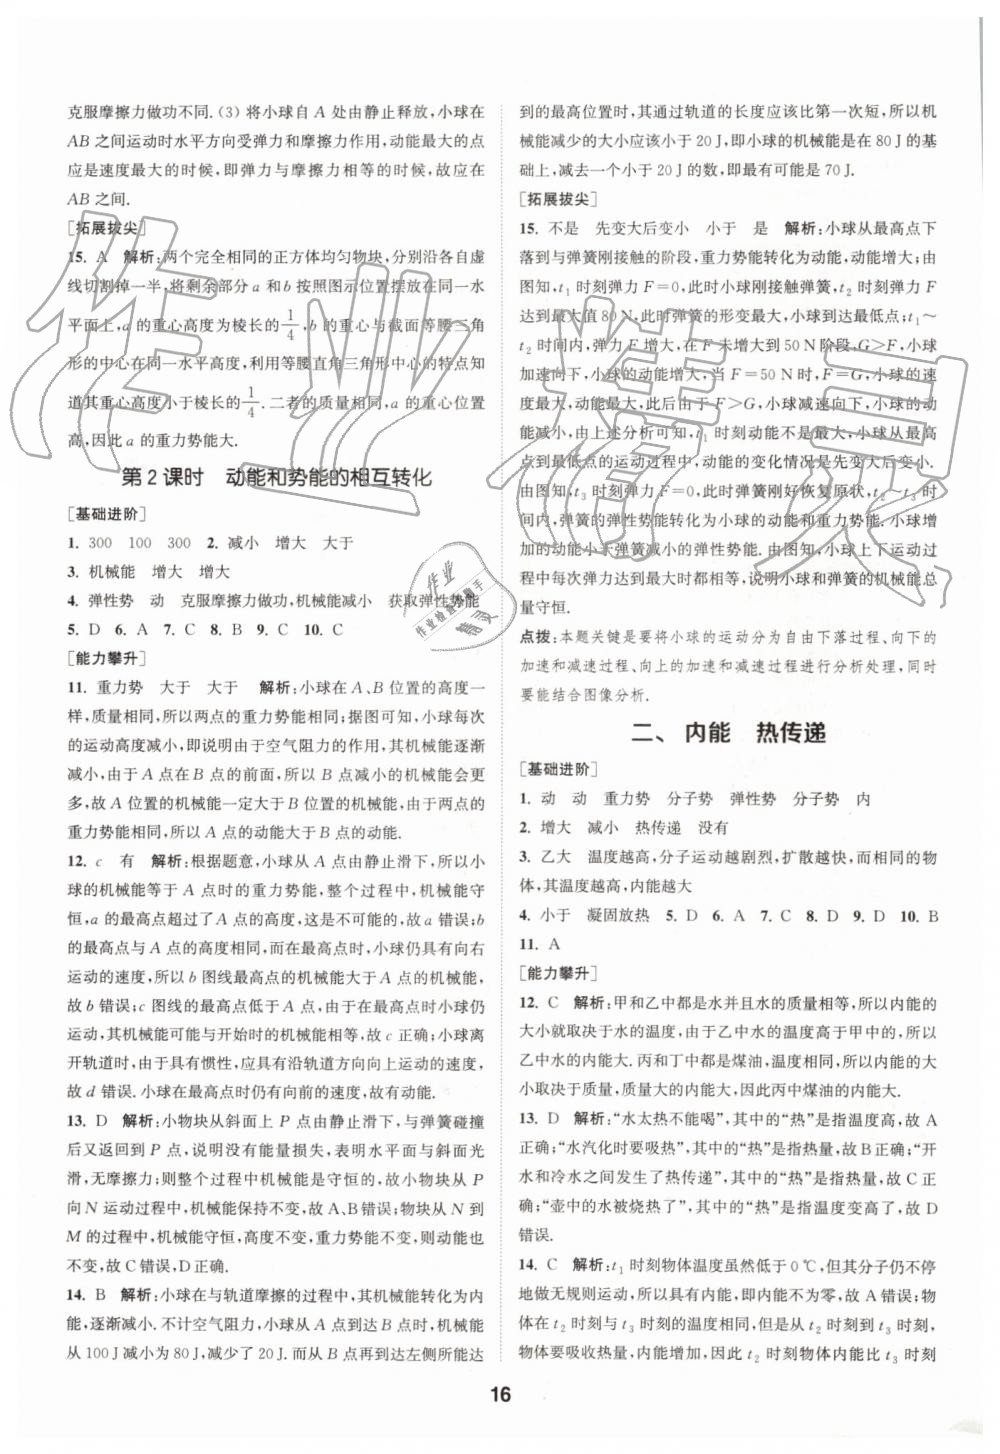 克服摩擦力做功不同. (3) 将小球自 A 处由静止释放,小球在
AB 之间运动时水平方向受弹力和摩擦力作用,动能最大的点
应是速度最大的时候,即弹力与摩擦力相等的时候,故应在
AB 之间.
[拓展拔尖]
15. A 解析:两个完全相同的正方体均匀物块,分别沿各自虚
线切割掉一半,将剩余部分 a 和 b 按照图示位置摆放在同一水
平面上,a 的重心高度为棱长的 1/4,b 的重心与截面等腰三角
形的中心在同一水平高度,利用等腰直角三角形中心的特点知
道其重心高度小于棱长的 1/4.二者的质量相同,a 的重心位置
高,因此 a 的重力势能大.
第 2 课时 动能和势能的相互转化
[基础进阶]
1. 300 100 300 2. 减小 增大 大于
3. 机械能 增大 增大
4. 弹性势 动 克服摩擦力做功,机械能减小 获取弹性势能
5. D 6. A 7. C 8. B 9. C 10. C
[能力攀升]
11. 重力势 大于 大于 解析:小球在 A、B 位置的高度一
样,质量相同,所以两点的重力势能相同;据图可知,小球每次
的运动高度减小,即说明由于空气阻力的作用,其机械能逐渐
减小,由于 A 点在 B 点的前面,所以 A 点的机械能大于 B 点的
机械能,故 A 位置的机械能一定大于 B 位置的机械能,由于两点的
重力势能相同,所以 A 点的动能大于 B 点的动能.
12. c 有 解析:根据题意,小球从 A 点由静止滑下,所以小
球的机械能等于 A 点时的重力势能,整个过程中,机械能守
恒,a 的最高点超过了 A 点的高度,这是不可能的,故 a 错误;b
的最高点与 A 点的高度相同,而在最高点时,小球仍具有向右
运动的速度,所以 b 图线最高点的机械能大于 A 点的机械能,
故 b 错误;c 图线的最高点低于 A 点,由于在最高点时小球仍
运动,其机械能可能与开始时的机械能相等,故 c 正确;小球离
开轨道时,由于具有惯性,应具有沿轨道方向向上运动的速度,
故 d 错误. 小球在最高点时仍有向前的速度,故有动能.
13. D 解析:小物块从斜面上 P 点由静止滑下,与弹簧碰撞
后又返回到 P 点,说明没有能量损失,表明水平面与斜面光
滑,无摩擦力;则整个过程中机械能是守恒的,故小物块从 P
向 N 运动过程中,机械能保持不变,故A、B错误;物块从 N 到
M 的过程中,机械能守恒,高度不变,重力势能不变,则动能也
不变,故 C 错误,D 正确.
14. B 解析:小球在与轨道摩擦的过程中,其机械能转化为内
能,逐渐减小. 不计空气阻力,小球从 A 点到达 B 点时,机械能
从 100 J 减为 80 J,减少了 20 J. 而从 B 点再到达左侧所能达
到的最高位置时,其通过轨道的长度应该比第一次短,所以机
械能减少的大小应该小于 20 J,即小球的机械能是在 80 J 的基
础上,减去一个小于 20 J 的数,即最可能是 70 J.
[拓展拔尖]
15. 不是 先变大后变小 小于 是 解析:小球从最高点下
落到与弹簧刚接触的阶段,重力势能转化为动能,动能增大;由
图知,t₁ 时刻弹力 F=0,此时小球刚接触弹簧,t₂ 时刻弹力 F
达到最大值 80 N,此时弹簧的形变最大,小球到达最低点;t₁～
t₂ 时间内,弹力 F 增大,在 F 未增大到 50 N 阶段,G>F,小球
加速向下,小球的动能增大,当 F=50 N 时,F=G,小球的速
度最大,动能最大,此后由于 F>G,小球减速向下,小球的动
能减小,由上述分析可知,t₁ 时刻动能不是最大,小球从最高点
到最低点的运动过程中,动能的变化情况是先变大后变小.
由图知,t₃ 时刻弹力 F=0,此时弹簧刚好恢复原状,t₂～t₃ 时
间内,弹簧的弹性势能转化为小球的动能和重力势能,小球增
加的动能小于弹簧减小的弹性势能. 由图知,小球上下运动过
程中每次弹力达到最大时都相同,说明小球和弹簧的机械能总
量守恒.
点拨:本题关键是要将小球的运动分为自由下落过程、向下的
加速和减速过程、向上的加速和减速过程进行分析处理,同时
要能结合图像分析.
二、内能 热传递
[基础进阶]
1. 动 动 重力势 分子势 弹性势 分子势 内
2. 增大 减小 热传递 没有
3. 乙大 温度越高,分子运动越剧烈,扩散越快,而相同的物
体,其温度越高,内能越大
4. 小于 凝固放热 5. D 6. A 7. C 8. D 9. D 10. B
11. A
[能力攀升]
12. C 解析:甲和乙中都是水并且水的质量相等,所以内能的
大小就取决于水的温度,由于乙中水的温度高于甲中的,所以
乙中水的内能大. 丙和丁中都是煤油,温度相同,所以内能的大
小取决于质量,质量大的内能大,因此丙中煤油的内能大.
13. D 解析:“水太热不能喝”,其中的“热”是指温度高,故 A
正确;“水汽化时要吸热”,其中的“热”是指热量,故 B 正确;“开
水和冷水之间发生了热传递”,其中的“热”是指热量,故 C 正
确;“壶中的水被烧热了”,其中的“热”是指温度变高了,故 D
错误.
14. C 解析:t₁ 时刻物体温度虽然低于 0 ℃,但其分子仍不停
地做无规则运动,所以具有内能,即内能不为零,故 A 错误;物
体在 t₂ 时刻与 t₃ 时刻相比,虽然温度相同,但是从 t₂ 到 t₃ 时刻,
物体要吸收热量,内能增加,因此 t₂ 时刻物体内能比 t₃ 时刻
16
作业精灵
作业
作业检查小助手
精灵